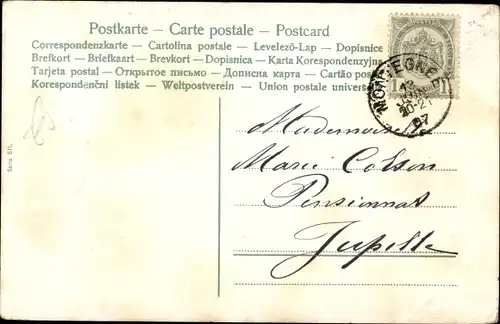 Postkarte — Carte postale — Postcard
Correspondenzkarte — Cartolina postale — Levelező-Lap — Dopisnice
Brefkort — Briefkaart — Brevkort — Dopisnica — Karta Korespondenzyjna
Tarjeta postal — Открытое письмо — Дописна карта — Cartão postal
Korespondenční lístek — Weltpostverein — Union postale universelle
20-21
07
Serie 511.
Mademoiselle
Marie Colson
Pensionnat
Jupille